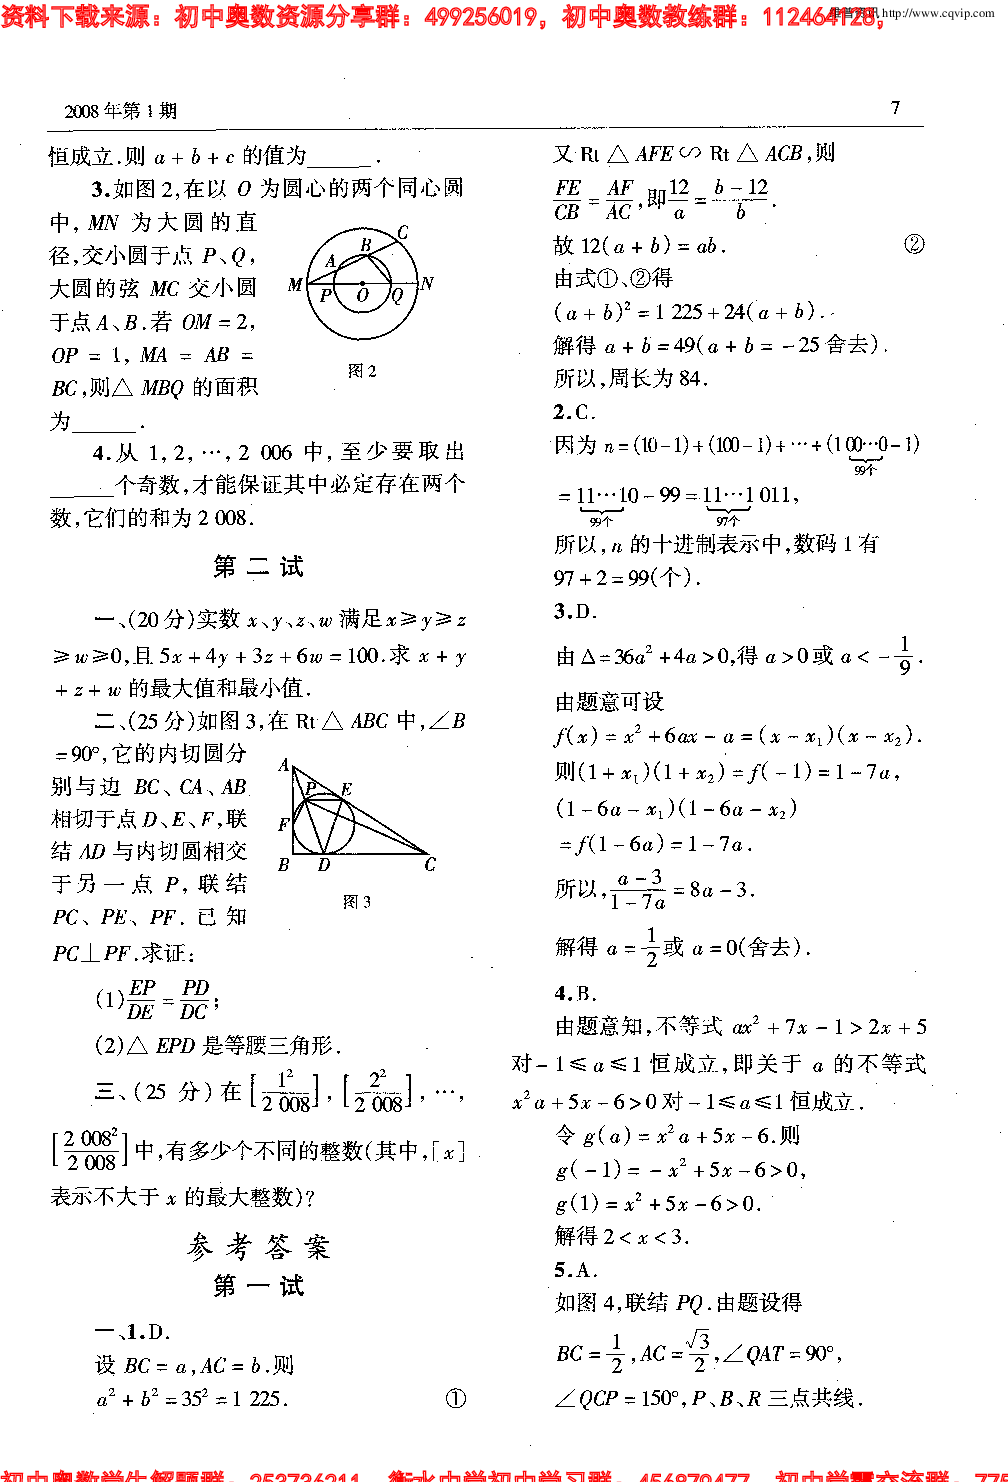 资料下载来源：初中奥数资源分享群：499256019，初中奥数教练群：112464128，
http://www.cqvip.com
2008 年第 1 期
7
恒成立.则 a + b + c 的值为______.
3.如图 2,在以 O 为圆心的两个同心圆
中, MN 为大圆的直
径,交小圆于点 P、Q,
大圆的弦 MC 交小圆
于点 A、B.若 OM = 2,
OP = 1, MA = AB =
BC,则△ MBQ 的面积
为______.
A B C
M P O Q N
图 2
4.从 1, 2, …, 2 006 中, 至少要取出
______个奇数,才能保证其中必定存在两个
数,它们的和为 2 008.
第 二 试
一、(20 分)实数 x、y、z、w 满足 x ≥ y ≥ z
≥ w ≥ 0,且 5x + 4y + 3z + 6w = 100.求 x + y
+ z + w 的最大值和最小值.
二、(25 分)如图 3,在 Rt △ ABC 中,∠B
= 90°,它的内切圆分
别与边 BC、CA、AB
相切于点 D、E、F,联
结 AD 与内切圆相交
于另一点 P, 联结
PC、PE、PF. 已知
PC⊥PF.求证:
A
P E
F
B D C
图 3
(1) EP/DE = PD/DC;
(2)△ EPD 是等腰三角形.
三、(25 分)在 [1²/2 008], [2²/2 008], …,
[2 008²/2 008] 中,有多少个不同的整数(其中,[x]
表示不大于 x 的最大整数)?
参 考 答 案
第 一 试
一、1.D.
设 BC = a, AC = b.则
a² + b² = 35² = 1 225. ①
又 Rt △ AFE ∽ Rt △ ACB,则
FE/CB = AF/AC,即 12/a = (b - 12)/b.
故 12(a + b) = ab. ②
由式①、②得
(a + b)² = 1 225 + 24(a + b).
解得 a + b = 49(a + b = - 25 舍去).
所以,周长为 84.
2.C.
因为 n = (10 - 1) + (100 - 1) + … + (100…0 - 1)
99个
= 11…10 - 99 = 11…1 011,
99个 97个
所以, n 的十进制表示中,数码 1 有
97 + 2 = 99(个).
3.D.
由 Δ = 36a² + 4a > 0,得 a > 0 或 a < - 1/9.
由题意可设
f(x) = x² + 6ax - a = (x - x₁)(x - x₂).
则(1 + x₁)(1 + x₂) = f(- 1) = 1 - 7a,
(1 - 6a - x₁)(1 - 6a - x₂)
= f(1 - 6a) = 1 - 7a.
所以, (a - 3)/(1 - 7a) = 8a - 3.
解得 a = 1/2 或 a = 0(舍去).
4.B.
由题意知,不等式 ax² + 7x - 1 > 2x + 5
对 - 1 ≤ a ≤ 1 恒成立,即关于 a 的不等式
x²a + 5x - 6 > 0 对 - 1 ≤ a ≤ 1 恒成立.
令 g(a) = x²a + 5x - 6.则
g(- 1) = - x² + 5x - 6 > 0,
g(1) = x² + 5x - 6 > 0.
解得 2 < x < 3.
5.A.
如图 4,联结 PQ.由题设得
BC = 1/2, AC = √3/2, ∠QAT = 90°,
∠QCP = 150°, P、B、R 三点共线.